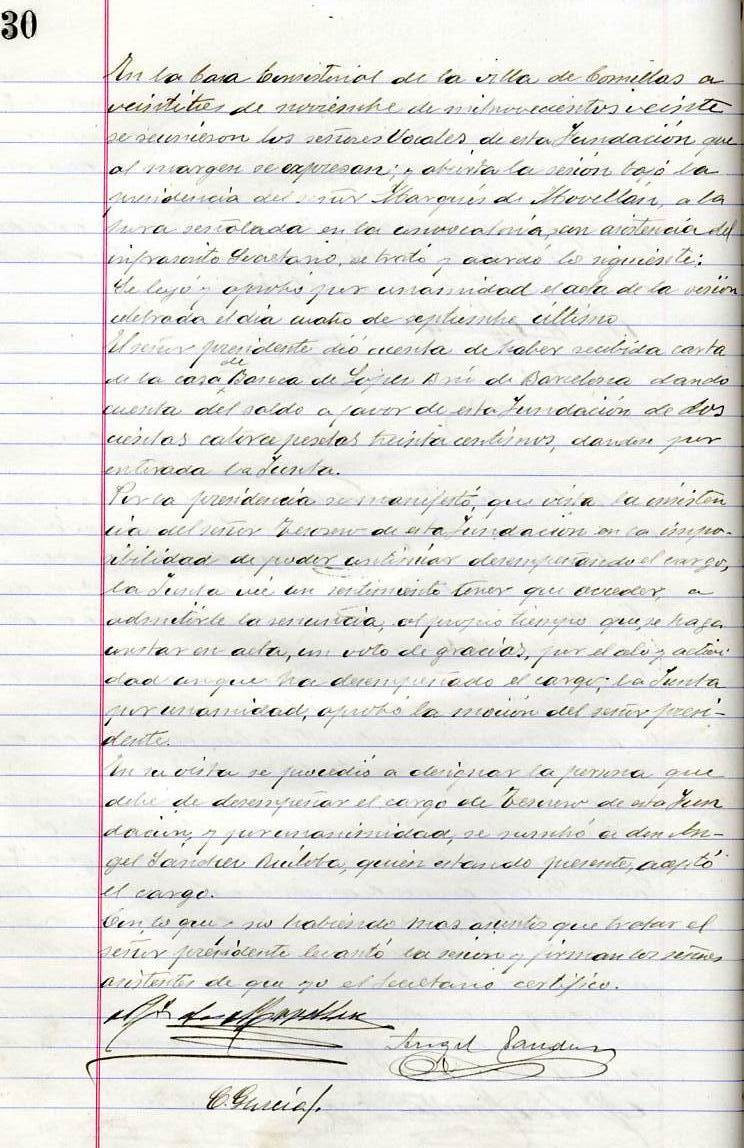 30
En la Casa Consistorial de la villa de Comillas a
veintitres de noviembre de mil novecientos veinte
se reunieron los señores Vocales de esta Fundación que
al margen se expresan; y abierta la sesión bajo la
presidencia del señor Marqués de Movellán, a la
hora señalada en la convocatoria, con asistencia del
infrascrito Secretario, se trató y acordó lo siguiente:
Se leyó y aprobó por unanimidad el acta de la sesión
celebrada el día cuatro de septiembre último
El señor presidente dió cuenta de haber recibido carta
de la casa de Banca de Bru de Barcelona dando
cuenta del saldo a favor de esta Fundación de dos
cientas catorce pesetas treinta centimos, dandose por
enterada la Junta.
Por la presidencia se manifestó, que vista la insisten
cia del señor Tesorero de esta Fundación en la impo-
sibilidad de poder continuar desempeñando el cargo,
la Junta vé con sentimiento tener que acceder, a
admitirle la renuncia, al propio tiempo que, se haga
constar en acta, un voto de gracias, por el celo y activi
dad con que ha desempeñado el cargo; la Junta
por unanimidad, aprobó la moción del señor presi-
dente.
En su vista se procedió a designar la persona que
debe de desempeñar el cargo de Tesorero de esta Fun
dación, y por unanimidad, se nombró a don An-
gel Sánchez quien estando presente, aceptó
el cargo.
Con lo que y no habiendo mas asuntos que tratar el
señor presidente levantó la sesión y firman los señores
asistentes de que yo el Secretario certifico.
El Mqs. de Movellán
Angel Sanchez
C. García